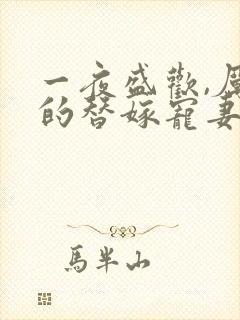 一夜盛歡,厲
的替嫁寵妻
馬半山